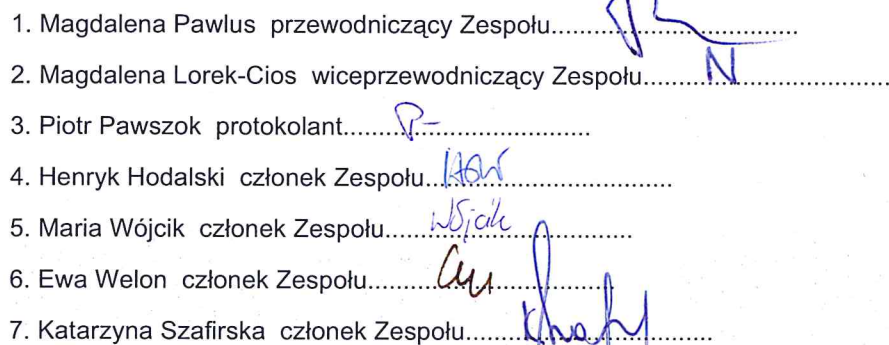 1. Magdalena Pawlus przewodniczący Zespołu..............................
2. Magdalena Lorek-Cios wiceprzewodniczący Zespołu..............................
3. Piotr Pawszok protokolant..............................
4. Henryk Hodalski członek Zespołu..............................
5. Maria Wójcik członek Zespołu.....Wójcik...............
6. Ewa Welon członek Zespołu..............................
7. Katarzyna Szafirska członek Zespołu..............................